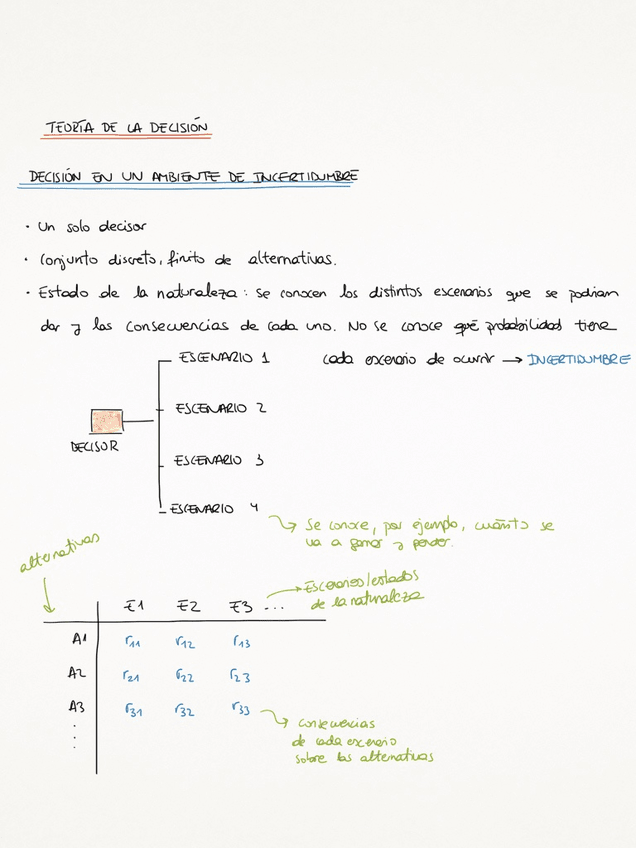 TEORÍA DE LA DECISIÓN
DECISIÓN EN UN AMBIENTE DE INCERTIDUMBRE
· Un solo decisor
· Conjunto discreto, finito de alternativas.
· Estado de la naturaleza: se conocen los distintos escenarios que se podrian
dar y las consecuencias de cada uno. No se conoce qué probabilidad tiene
cada escenario de ocurrir → INCERTIDUMBRE
ESCENARIO 1
ESCENARIO 2
DECISOR
ESCENARIO 3
ESCENARIO 4
Se conoce, por ejemplo, cuánto se
va a ganar y perder.
alternativas
Escenarios/estados
de la naturaleza
E1 E2 E3 ...
A1 r11 r12 r13
A2 r21 r22 r23
A3 r31 r32 r33
consecuencias
de cada escenario
sobre las alternativas